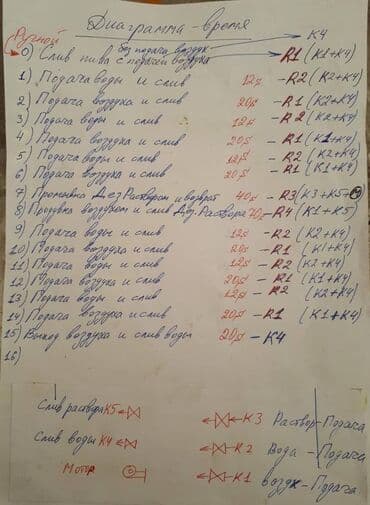 Диаграмма - время
Ручной К4
0) Слив пива без подача воздух с подачей воздуха R1 (К1+К4)
1) Подача воды и слив 12s - R2 (К2+К4)
2) Подача воздуха и слив 20s - R1 (К2+К4)
3) Подача воды и слив 12s - R2 (К2+К4)
4) Подача воздуха и слив 20s - R1 (К1+К4)
5) Подача воды и слив 12s - R2 (К2+К4)
6) Подача воздуха и слив 20s - R1 (К1+К4)
7 Промывка Дез Раствором и возврат 40s - R3 (К3+К5+М)
8 Продувка воздухом и слив Дез Раствора 20s - R4 (К1+К5)
9) Подача воды и слив 12s - R2 (К2+К4)
10) Подача воздуха и слив 20s - R1 (К1+К4)
11) Подача воды и слив 12s - R2 (К2+К4)
12) Подача воздуха и слив 20s - R1 (К1+К4)
13) Подача воды и слив 12s - R2 (К2+К4)
14) Подача воздуха и слив 20s - R1 (К1+К4)
15) Выход воздуха и слив воды 20s - К4
16)
Слив раствора К5 К3 Раствор - Подача
Слив воды К4 К2 Вода - Подача
Мотор К1 воздх - Подача